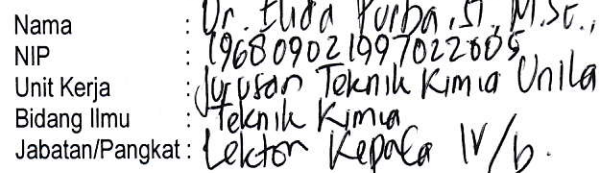 Nama : Dr. Elida Purba, ST, M.Sc.,
NIP : 196809021997022005
Unit Kerja : Jurusan Teknik Kimia Unila
Bidang Ilmu : Teknik Kimia
Jabatan/Pangkat : Lektor Kepala IV/b.